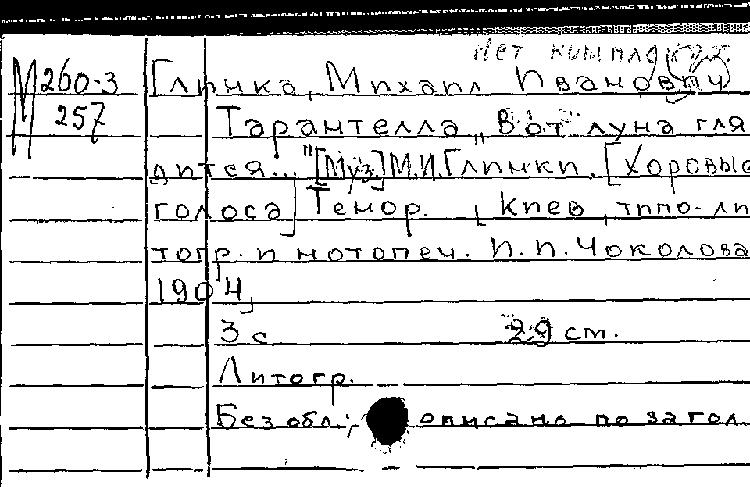 Нет
М260-3 Глинка, Михаил Иванович
257 Тарантелла „Вот луна гля
дится..." [Муз.] М.И.Глинки. [Хоровые
голоса] Тенор. [Киев, типо-ли
тогр. и нотопеч. И.И.Чоколова
1904]
3 с 29 см.
Литогр.
Без обл.; описано по загол.